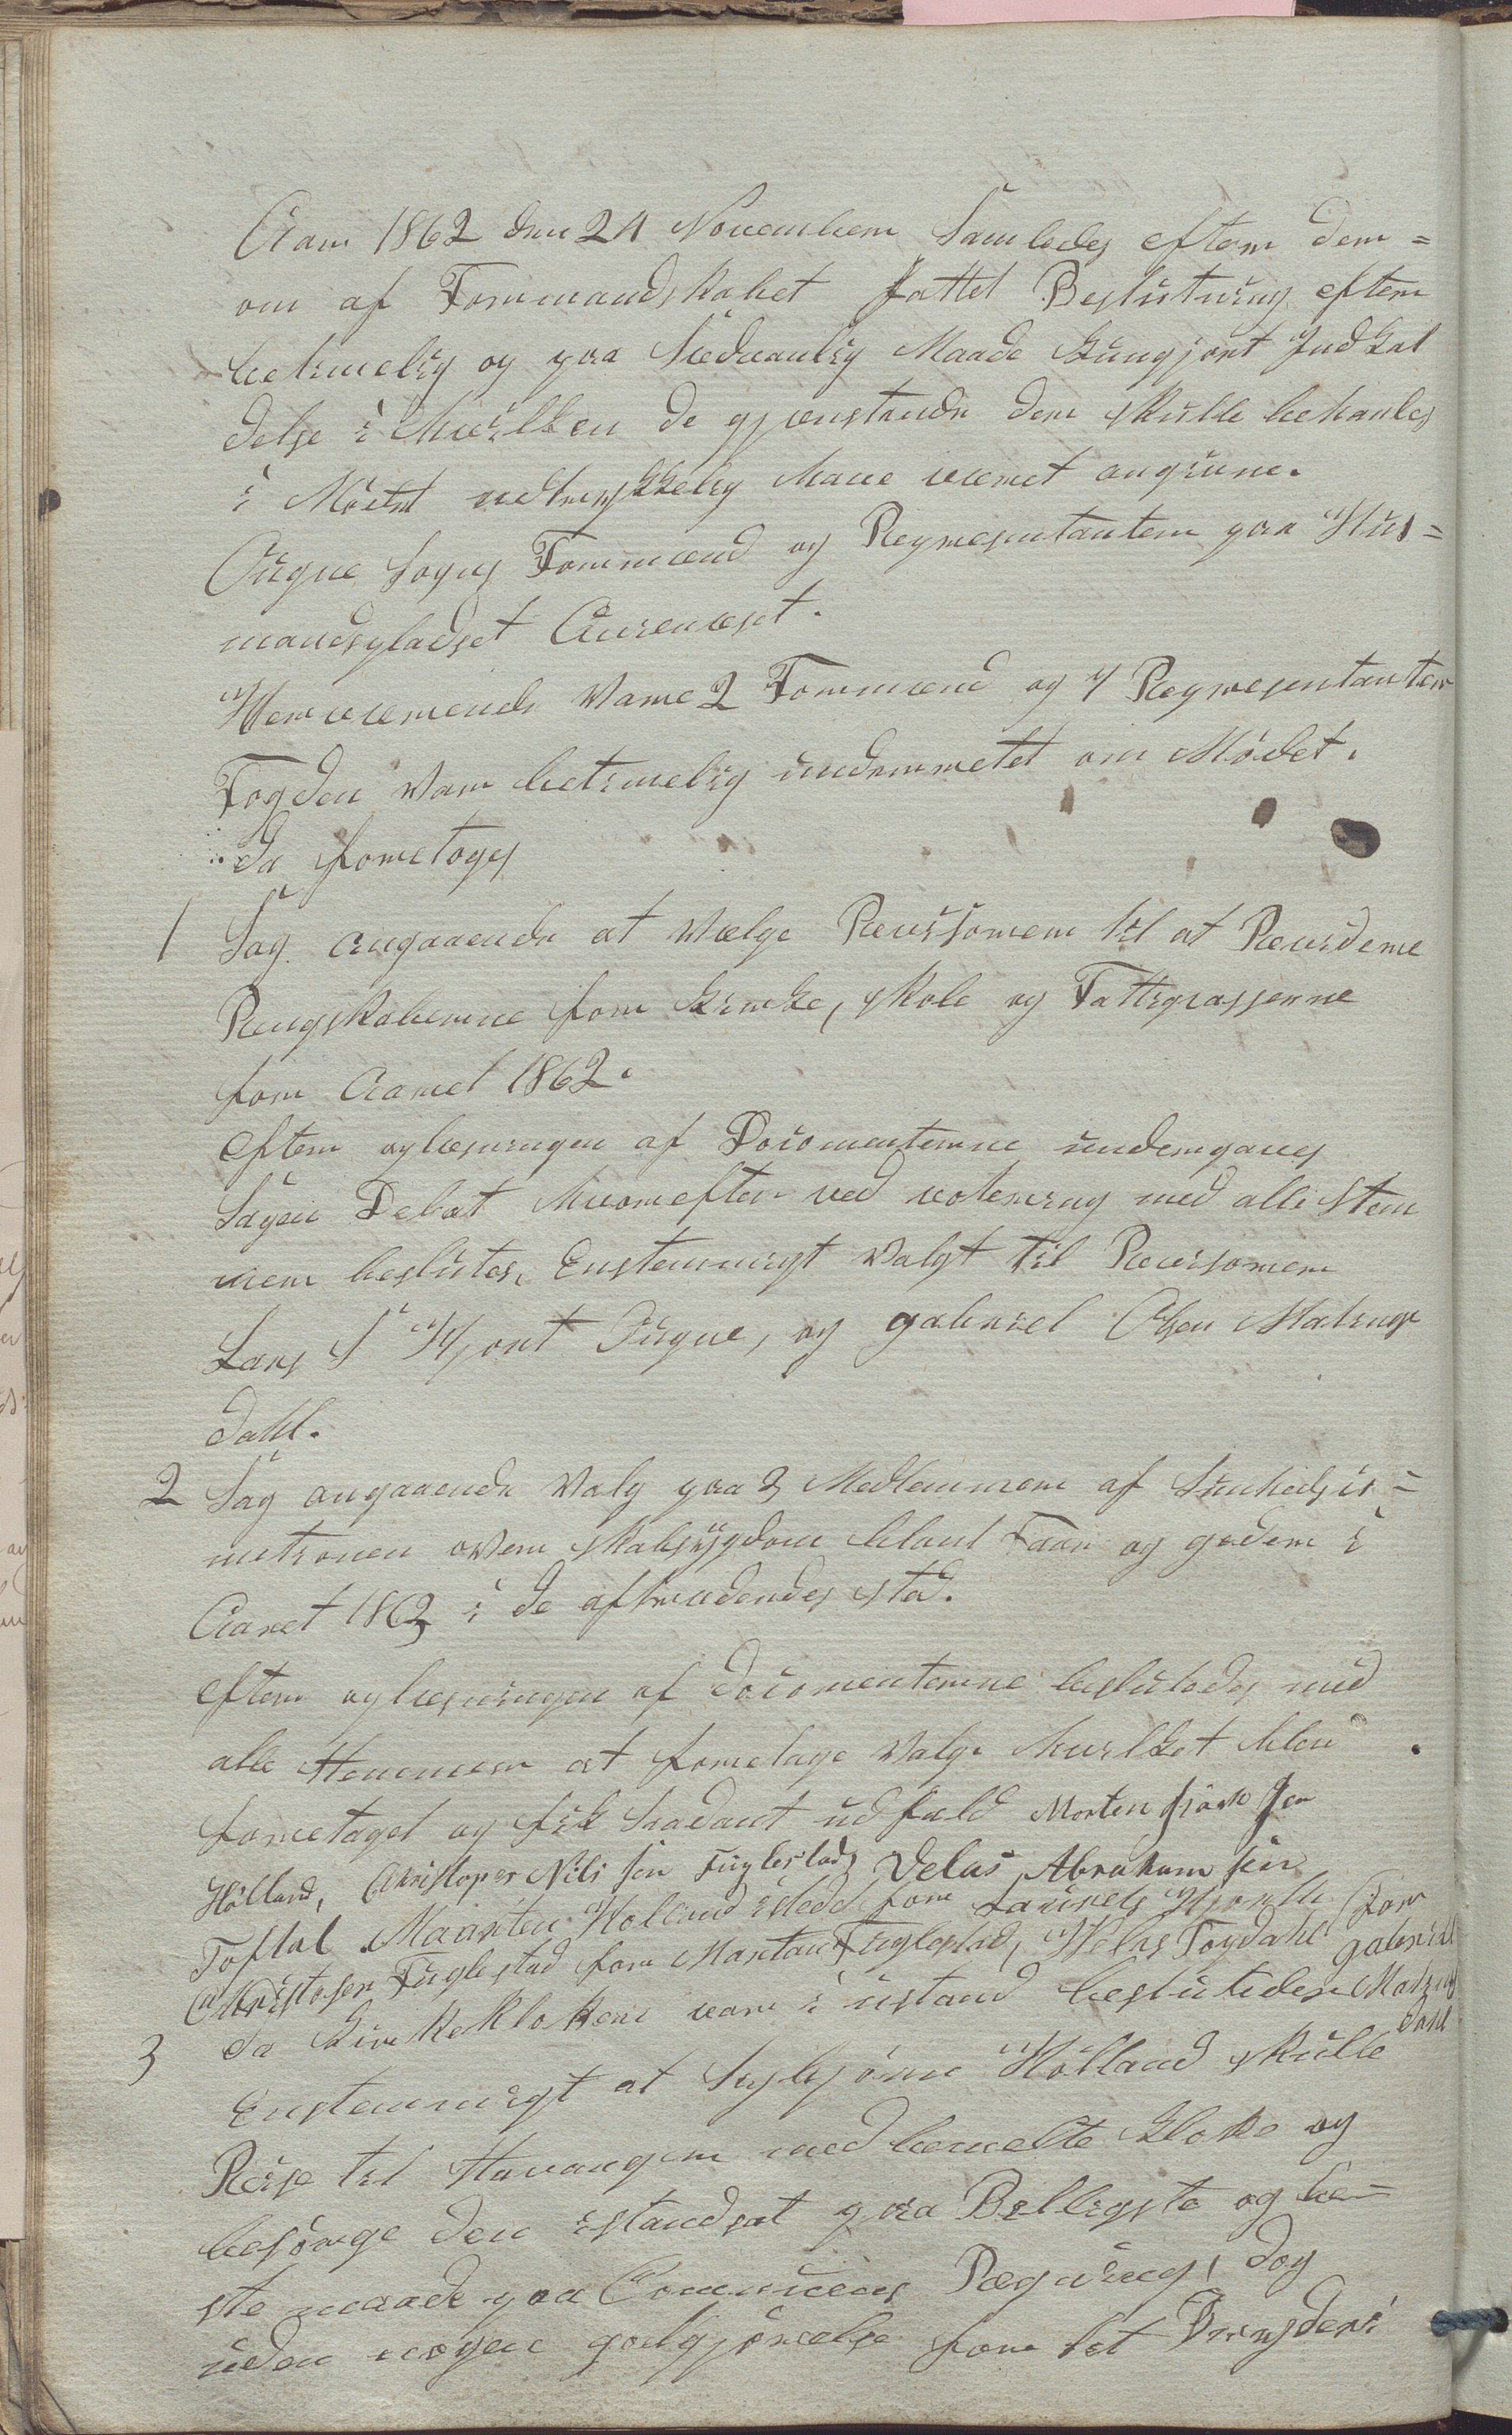 Aar 1862 den 24 November Samledes efter der=
om af Formandskabet fattet Beslutning efter
betimelig og paa Sædvanlig Maade Kungjort Indkal
delse i hvilken de gjenstande der skulle behanles
i Mödet udtrykkelig have været angivne.
Ougne Sogns Formænd og Representanter paa Hus=
mandspladset Aurenæset.
Herværende Vare 2 Formænd og 7 Representanter
Fogden Var betimelig underrettet om Mödet.
Da foretoges
1 Sag angaaende at Vælge Revissorer til at Revidere
Rengskaberne for Kirke, skole og Fattigcasserne
for Aaret 1862.
efter oplæsningen af Documenterne undergaves
Sagen Debat hvorefter ved votering med alle Stem
mer beslutes, Enstemmigt Valgt til Revisorer
Lars S Hjort Ougne, og gabriel Olsen Matings
dahl.
2 Sag angaaende Valg paa 3 Medlemmer af Sunheds co=
mitionen over skabsygdom blant Faar og geder i
Aaret 1863 i de aftrædendes sted.
efter oplæsningen af documenterne beslutedes med
alle Stemmer at foretage Valge hvilket blev
foretaget og fik Saadant udfald Morten Sen
Hölland, Christoper Nils sen Fuglestad, Velas Abraham sen
Toftal. Maarten Holland istedet for Laurits Hjorth
Christofer Fuglestad for Martan Fuglestad, Velas Toydahl for gabriel
Matings
dahl
3 Da Kirkeklokken var i ustand beslutedes
Enstemmigt at Sigbjörn Hölland skulle
Reise til Stavanger med bemelte Kloke og
besörge den istandsat paa Billigste og be=
ste maade paa Communens Regning, dog
uden nogen godtgjörelse for det Bryderi